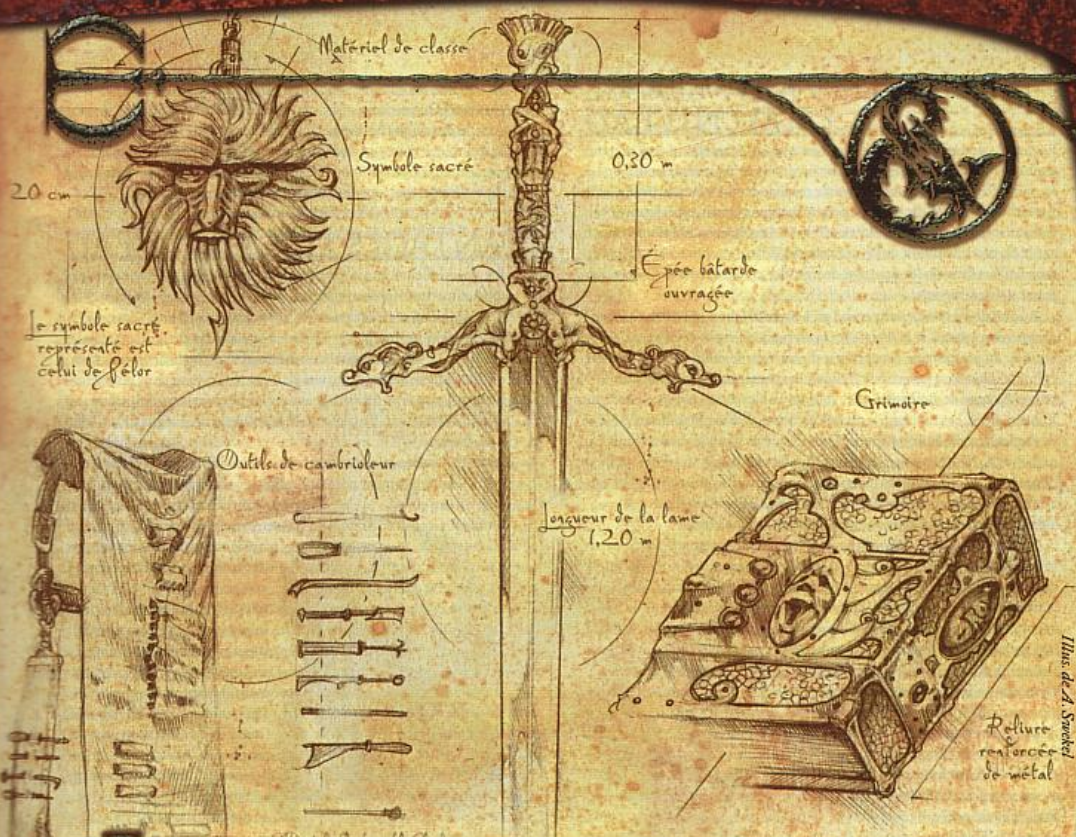 Matériel de classe
Symbole sacré
20 cm
0,30 m
Épée bâtarde
ouvragée
Le symbole sacré
représenté est
celui de Pélor
Grimoire
Outils de cambrioleur
Longueur de la lame
1,20 m
Reliure
renforcée
de métal
Illus. de A. Swekel